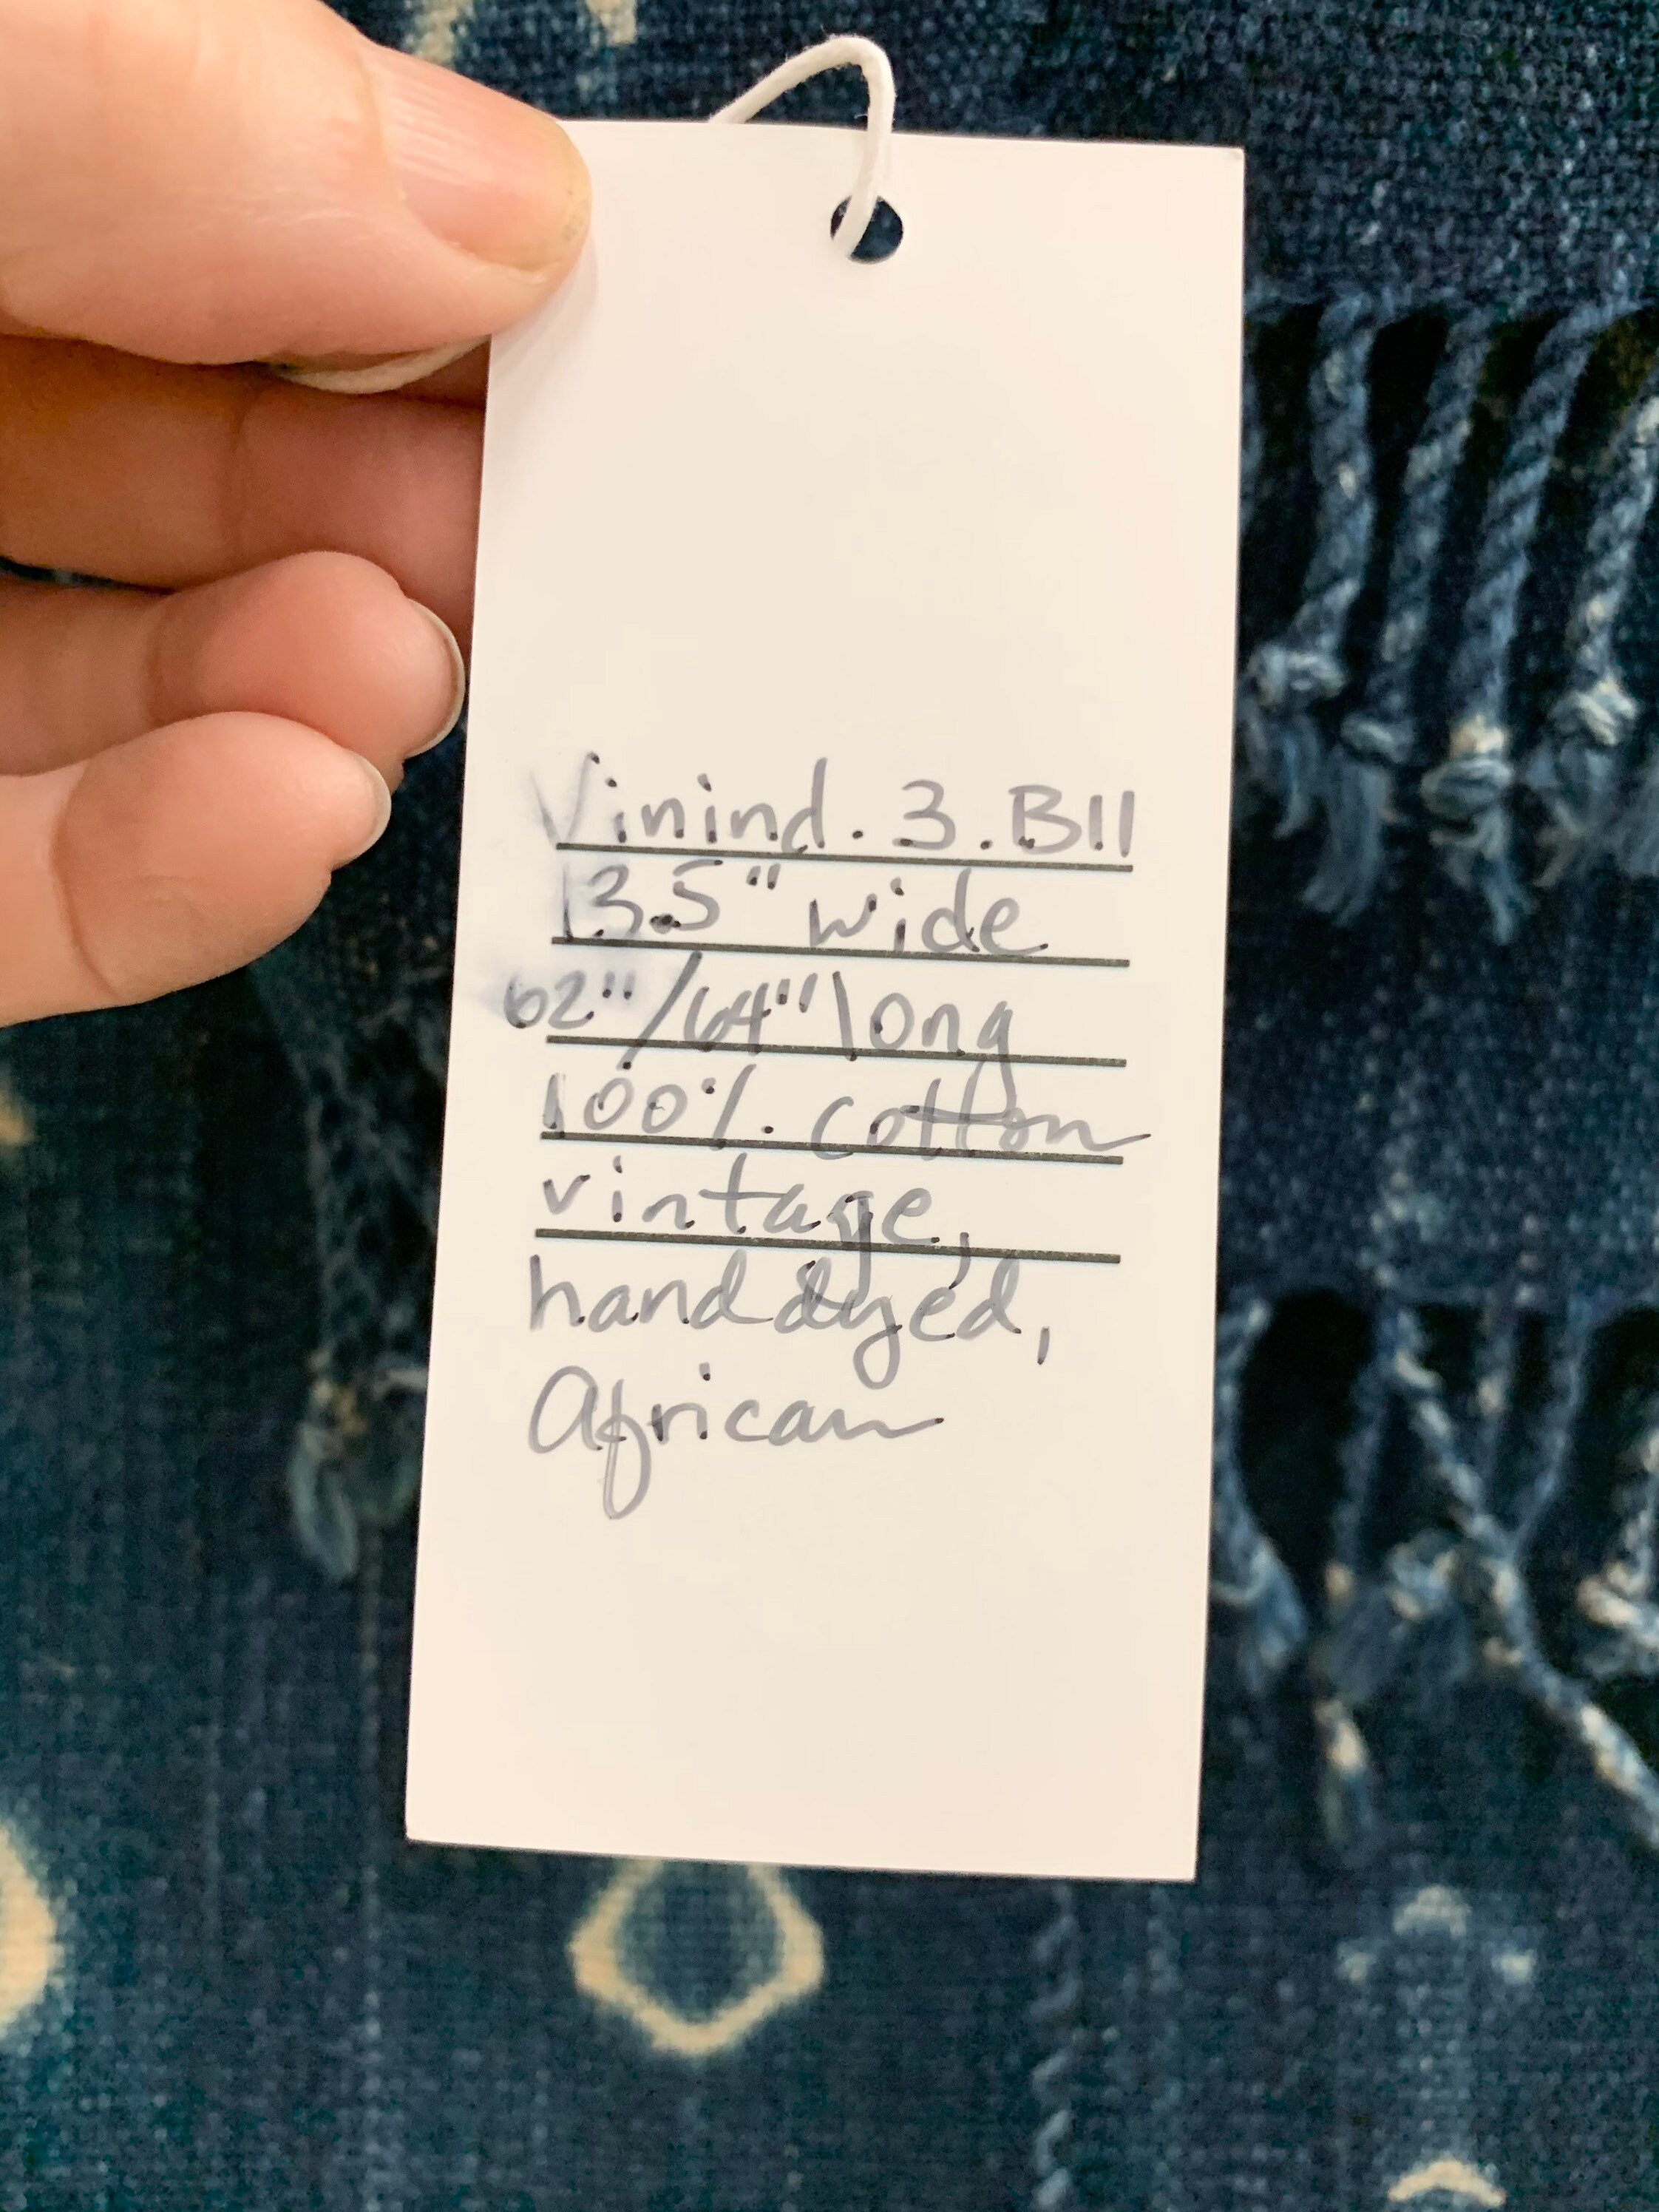 Vinind. 3. B11
13.5" wide
62"/64" long
100% cotton
vintage,
hand dyed,
African